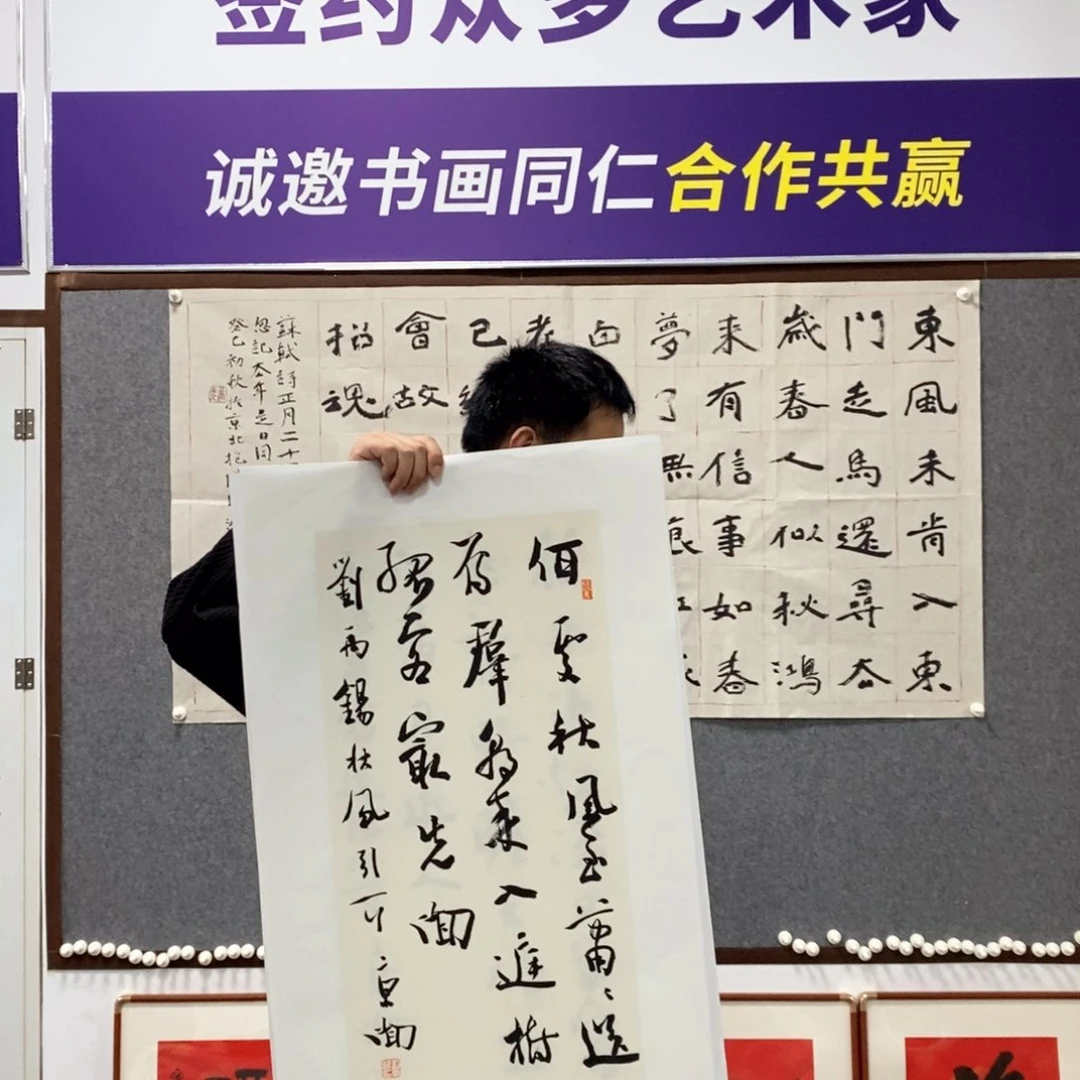 签约众多艺术家
诚邀书画同仁合作共赢
東風未肯入東
門走馬還尋去
歲春人似秋鴻
来有信事如春
夢了
老
已
會故
招魂
蘇軾詩正月二十
忽記去年是日同
癸巳初秋於京北
何處秋風至蕭〻送
雁群朝来入庭樹
孤客最先聞
劉禹錫秋風引